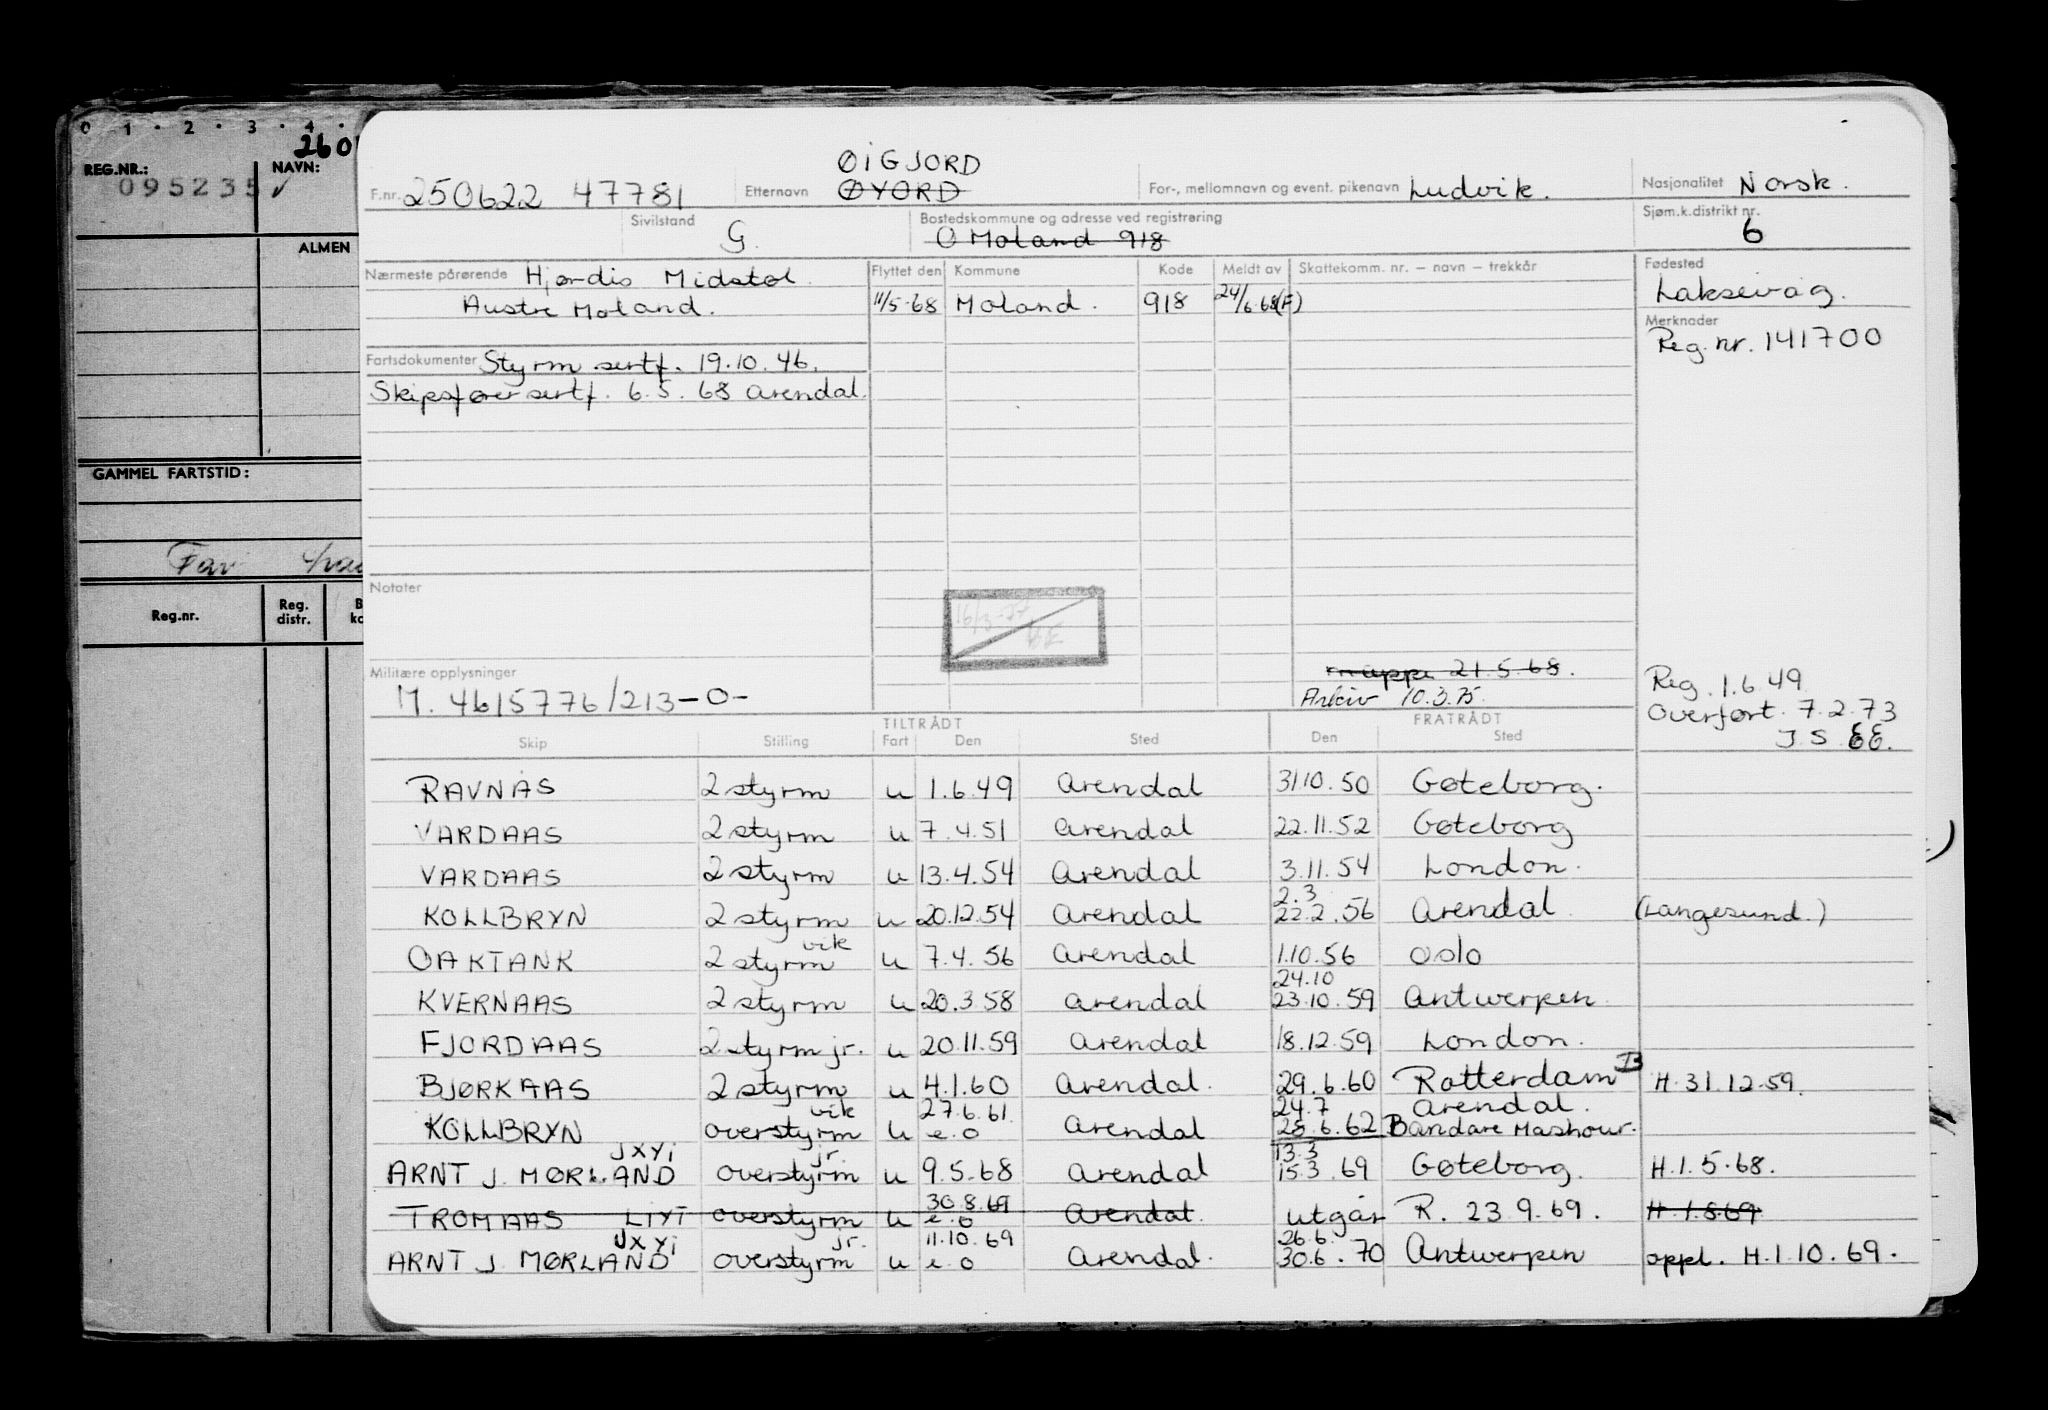 0 1 · 2 · 3 · 4 ·
REG.NR.: 095235 NAVN: 260
ALMEN
GAMMEL FARTSTID:
Reg.nr. Reg. distr.
ØIGJORD
F.nr. 250622 47781 Etternavn ØYORD For-, mellomnavn og event. pikenavn Ludvik. Nasjonalitet Norsk.
Sivilstand G. Bostedskommune og adresse ved registrering Ø Moland 918 Sjøm.k.distrikt nr. 6
Nærmeste pårørende Hjørdis Midstøl. Flyttet den Kommune Kode Meldt av Skattekomm. nr. – navn – trekkår Fødested
Austre Moland. 11/5-68 Moland. 918 24/6.68(F) Laksevåg.
Merknader
Reg. nr. 141700
Fartsdokumenter Styrm sertf. 19.10.46.
Skipsfører sertf. 6.5.68 Arendal.
Notater
Militære opplysninger mappe 21.5.68.
M. 4615776/213-0- Arkiv 10.3.75.
Reg. 1.6.49.
Overført. 7.2.73
J.S. EE.
TILTRÅDT FRATRÅDT
Skip Stilling Fart Den Sted Den Sted
RAVNÅS 2 styrm u 1.6.49 Arendal 31.10.50 Gøteborg.
VARDAAS 2 styrm u 7.4.51 Arendal 22.11.52 Gøteborg
VARDAAS 2 styrm u 13.4.54 Arendal 3.11.54 London.
2.3
KOLLBRYN 2 styrm u 20.12.54 Arendal 22.2.56 Arendal. (Langesund.)
vik
OAKTANK 2 styrm u 7.4.56 Arendal 1.10.56 Oslo
24.10
KVERNAAS 2 styrm u 20.3.58 Arendal 23.10.59 Antwerpen.
FJORDAAS 2 styrm jr. u 20.11.59 Arendal 18.12.59 London.
BJØRKAAS 2 styrm u 4.1.60 Arendal. 29.6.60 Rotterdam B H.31.12.59.
vik 27.6.61. 24.7 Arendal.
KOLLBRYN overstyrm u e.o Arendal 25.6.62 Bandare Mashour.
JXYI jr. 13.3
ARNT J. MØRLAND overstyrm u 9.5.68 Arendal 15.3.69 Gøteborg. H.1.5.68.
30.8.69
TROMAAS LIYI overstyrm u e.o Arendal. utgår R. 23.9.69. H.1.8.69
JXYI jr. 11.10.69 26.6.
ARNT J. MØRLAND overstyrm u e.o Arendal. 30.6.70 Antwerpen oppl. H.1.10.69.